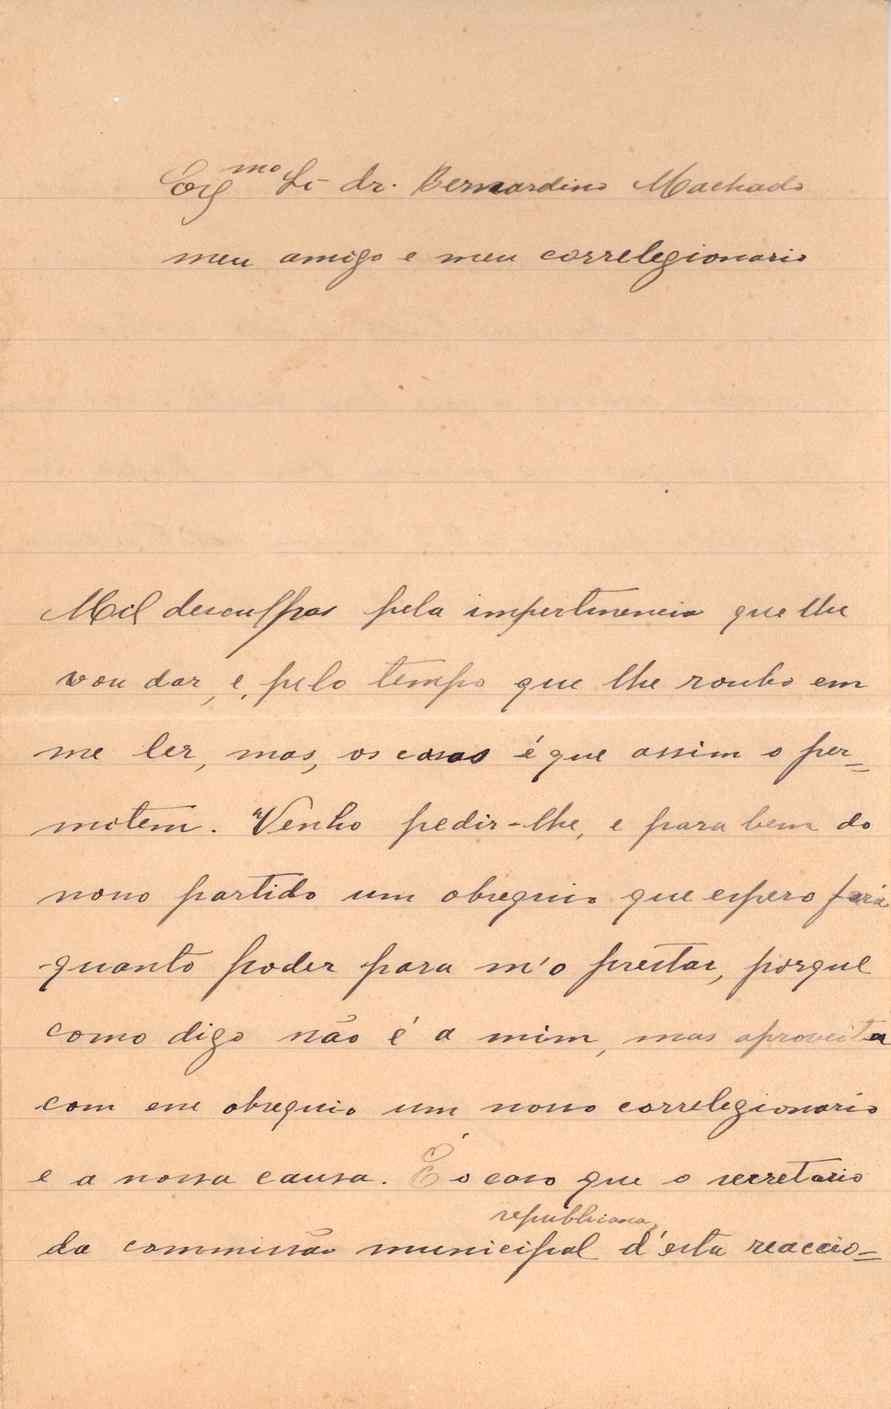 Exmo Sr dr. Bernardino Machado
meu amigo e meu correlegionario
Mil desculpas pela impertinencia que lhe
vou dar, e, pelo tempo que lhe roubo em
me ler, mas, os casos é que assim o per=
mitem. Venho pedir-lhe, e para bem do
nosso partido um obsequio que espero fará
quanto poder para m'o prestar, porque
como digo não é a mim, mas aproveita
com esse obsequio um nosso correlegionario
e a nossa causa. É o caso que o secretario
republicana,
da commissão municipal d'esta reaccio=